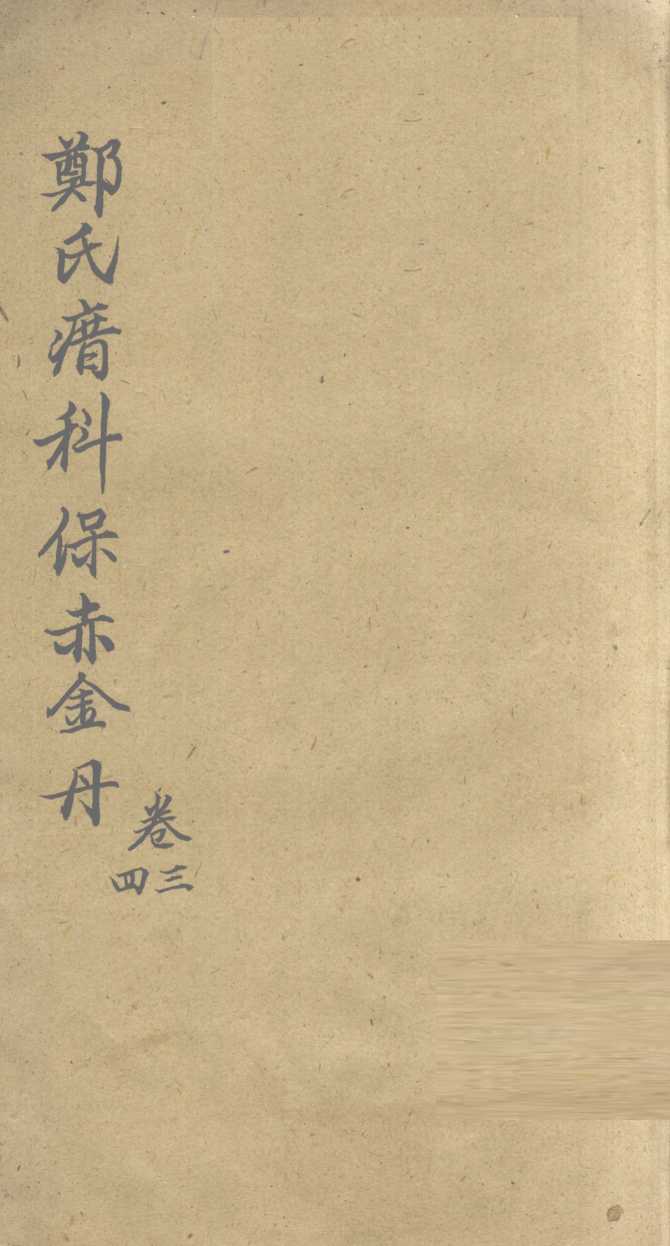 鄭氏瘄科保赤金丹
卷三四